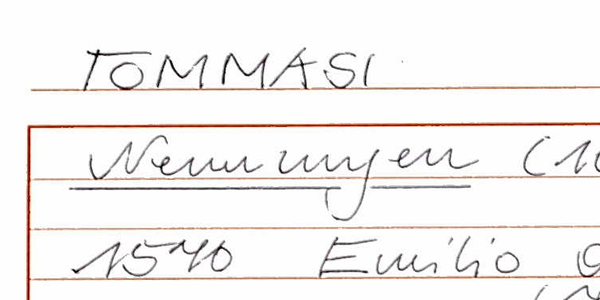 TOMMASI
Nennungen (10
1570 Emilio